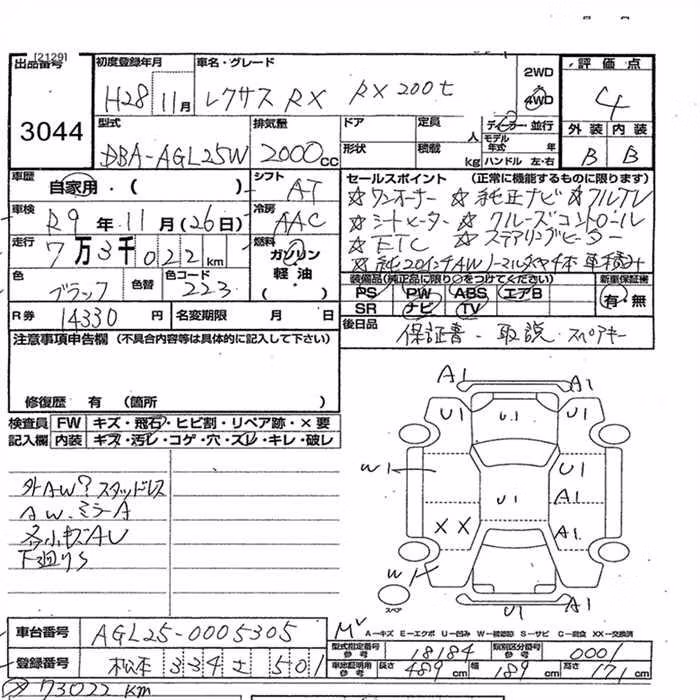 [2129]
出品番号
3044
初度登録年月
H28 11月
車名・グレード
レクサス RX RX200t
2WD
4WD
評価点
4
外装 内装
B B
型式
DBA-AGL25W
排気量
2000cc
ドア
定員 人
形状
積載 kg
ディーラー・並行
モデル年式 年
ハンドル 左・右
車歴
自家用・( )
シフト
AT
車検
R9年11月(26日)
冷房
AAC
走行
7万3千022km
燃料
ガソリン
軽油
( )
色
ブラック
色替
色コード
223
R券
14330円
名変期限 月 日
セールスポイント (正常に機能するものに限ります)
☆ワンオーナー ☆純正ナビ ☆フルTV
☆シートヒーター ☆クルーズコントロール
☆ETC ☆ステアリングヒータ
☆純20インチAW ノーマルタイヤ4本 車積み
装備品(純正品に限り○をつけてください)
PS PW ABS エアB
SR ナビ TV
新車保証書
有・無
後日品
保証書・取説・スペアキー
注意事項申告欄 (不具合内容等は具体的に記入して下さい)
修復歴 有 (箇所 )
検査員
記入欄
FW キズ・飛石・ヒビ割・リペア跡・×要
内装 キズ・汚レ・コゲ・穴・スレ・キレ・破レ
外AW? スタッドレス
AW.ミラーA
各小キズAU
下廻りS
A1 A1
U1 U1 U1
W1 U1
U1 A1
XX A1
W1
U1 A1
スペア
A-キズ E-エクボ U-凹み W-補修跡 S-サビ C-腐食 XX-交換済
車台番号
AGL25-0005305
型式指定番号
参考
18184
類別区分番号
参考
0001
登録番号
松本 334 さ 501
車庫証明用
参考
長さ 489cm 幅 189cm 高さ 171cm
73022km